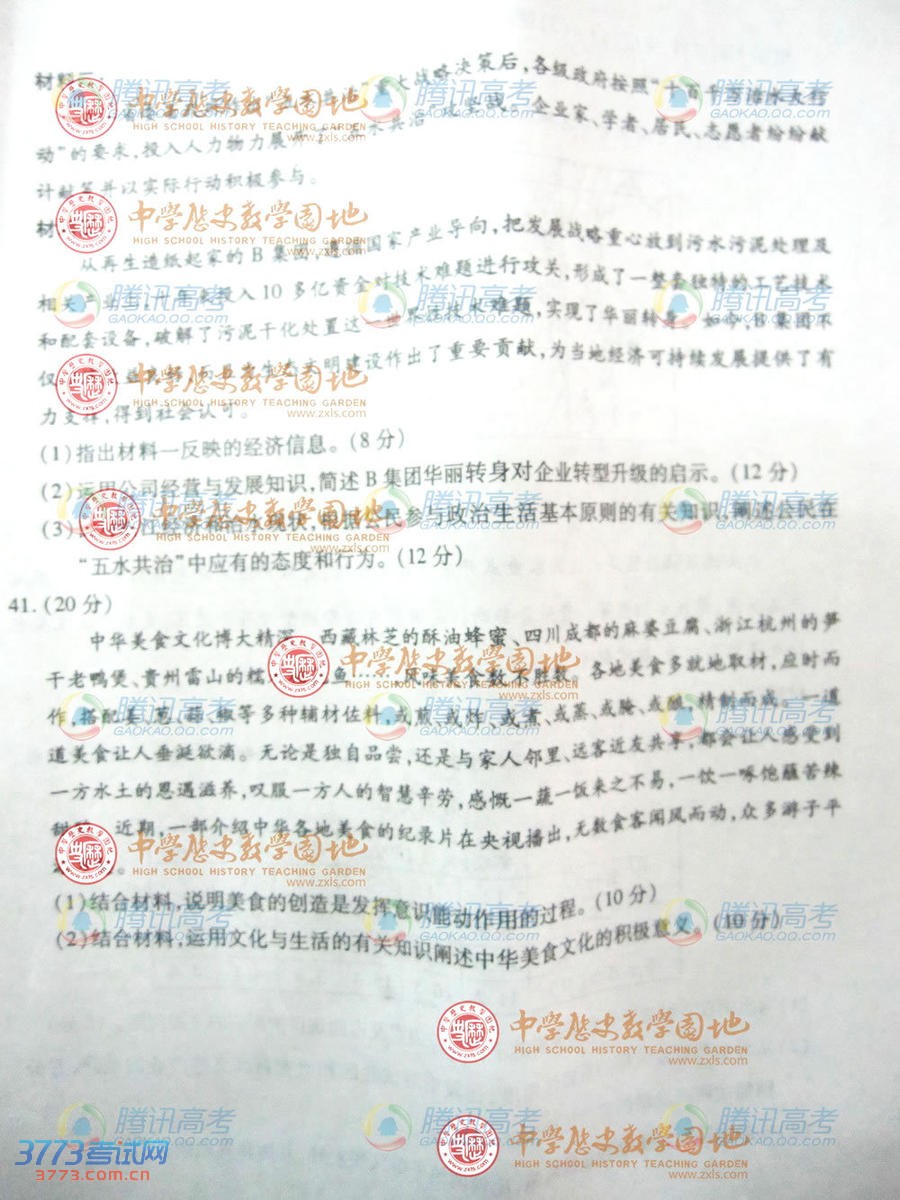 材料二:
重大战略决策后,各级政府按照“十百千万治水大行
动”的要求,投入人力物力展 水共治 攻坚战。企业家、学者、居民、志愿者纷纷献
计献策并以实际行动积极参与。
材
从再生造纸起家的B集团, 国家产业导向,把发展战略重心放到污水污泥处理及
相关产业上,十年来投入10多亿资金对技术难题进行攻关,形成了一整套独特的工艺技术
和配套设备,破解了污泥干化处置这一世界性技术难题,实现了华丽转身。如今,B集团不
仅 生态文明建设作出了重要贡献,为当地经济可持续发展提供了有
力支撑,得到社会认可。
(1)指出材料一反映的经济信息。(8分)
(2)运用公司经营与发展知识,简述B集团华丽转身对企业转型升级的启示。(12分)
(3) 江经济和治水现状,根据公民参与政治生活基本原则的有关知识,阐述公民在
“五水共治”中应有的态度和行为。(12分)
41.(20分)
中华美食文化博大精深。西藏林芝的酥油蜂蜜、四川成都的麻婆豆腐、浙江杭州的笋
干老鸭煲、贵州雷山的糯 鱼……风味美食数不胜数。各地美食多就地取材,应时而
作,搭配姜、葱、蒜、椒等多种辅材佐料,或煎、或炸、或煮、或蒸、或腌、或酿,精制而成。一道
道美食让人垂涎欲滴。无论是独自品尝,还是与家人邻里、远客近友共享,都会让人感受到
一方水土的恩遇滋养,叹服一方人的智慧辛劳,感慨一蔬一饭来之不易,一饮一啄饱蘸苦辣
甜酸。近期,一部介绍中华各地美食的纪录片在央视播出,无数食客闻风而动,众多游子平
(1)结合材料,说明美食的创造是发挥意识能动作用的过程。(10分)
(2)结合材料,运用文化与生活的有关知识阐述中华美食文化的积极意义。(10分)
中学历史教学园地
HIGH SCHOOL HISTORY TEACHING GARDEN
www.zxls.com
腾讯高考
GAOKAO.QQ.COM
3773考试网
3773.com.cn